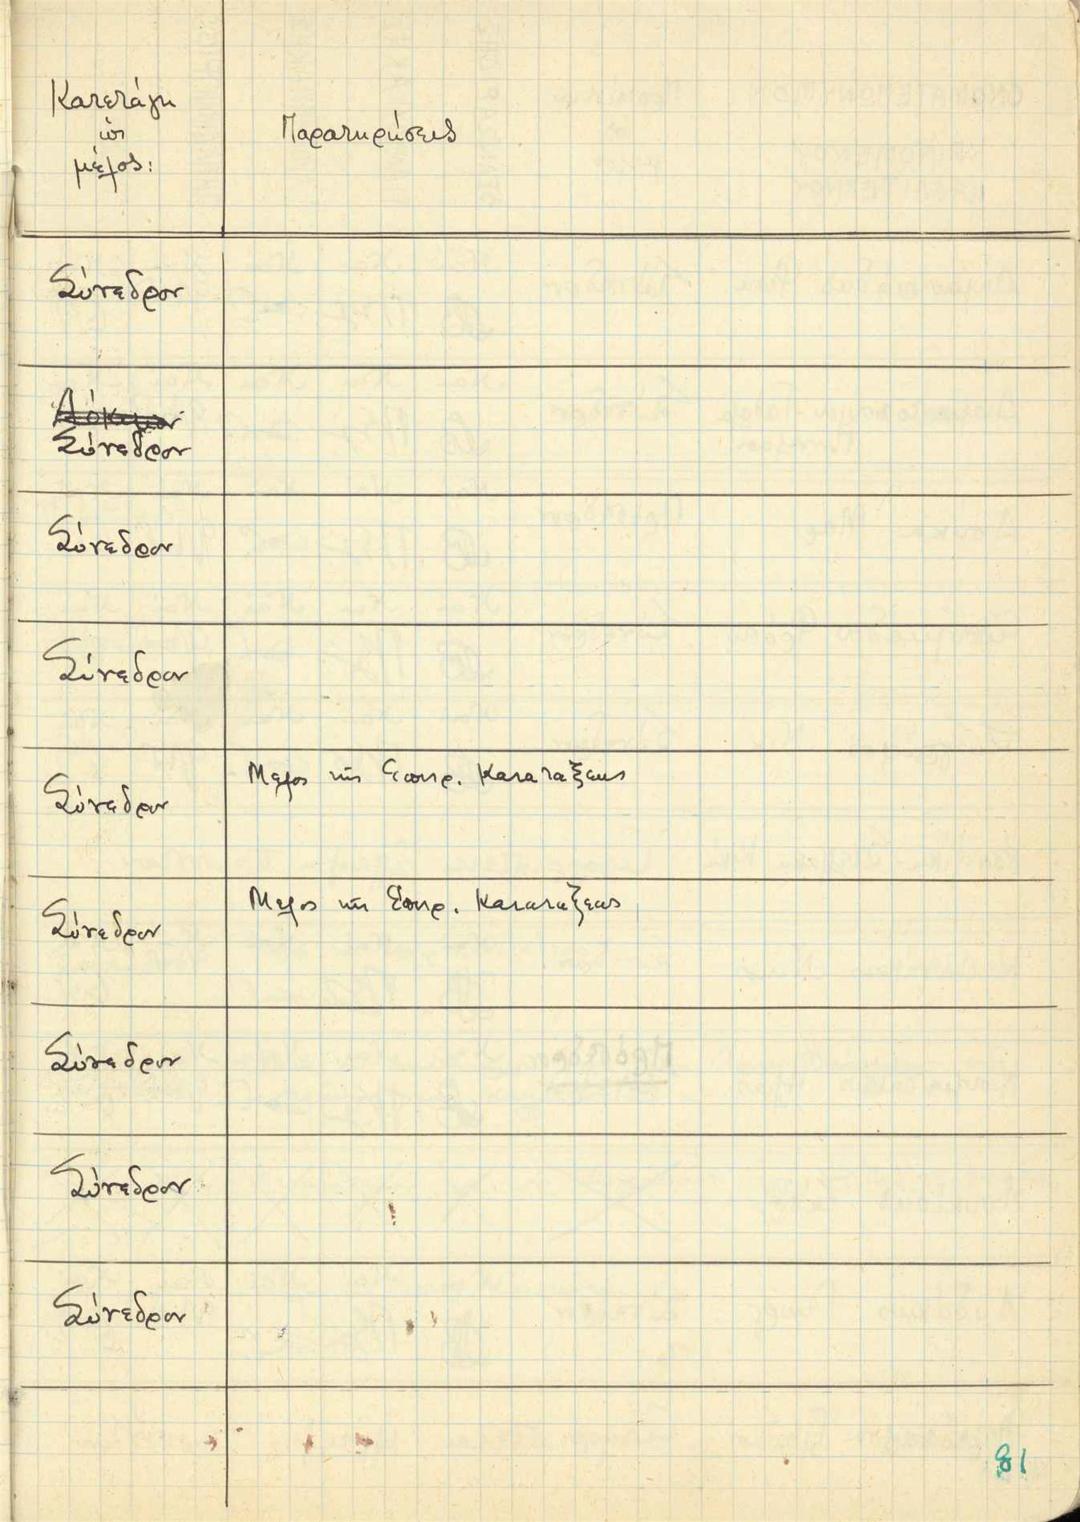 Κατετάγη
ὡς
μέλος:
Παρατηρήσεις
Σύνεδρον
Δόκιμον
Σύνεδρον
Σύνεδρον
Σύνεδρον
Σύνεδρον
Μελος της Επιτρ. Κατατάξεως
Σύνεδρον
Μελος της Επιτρ. Κατατάξεως
Σύνεδρον
Σύνεδρον
Σύνεδρον
81